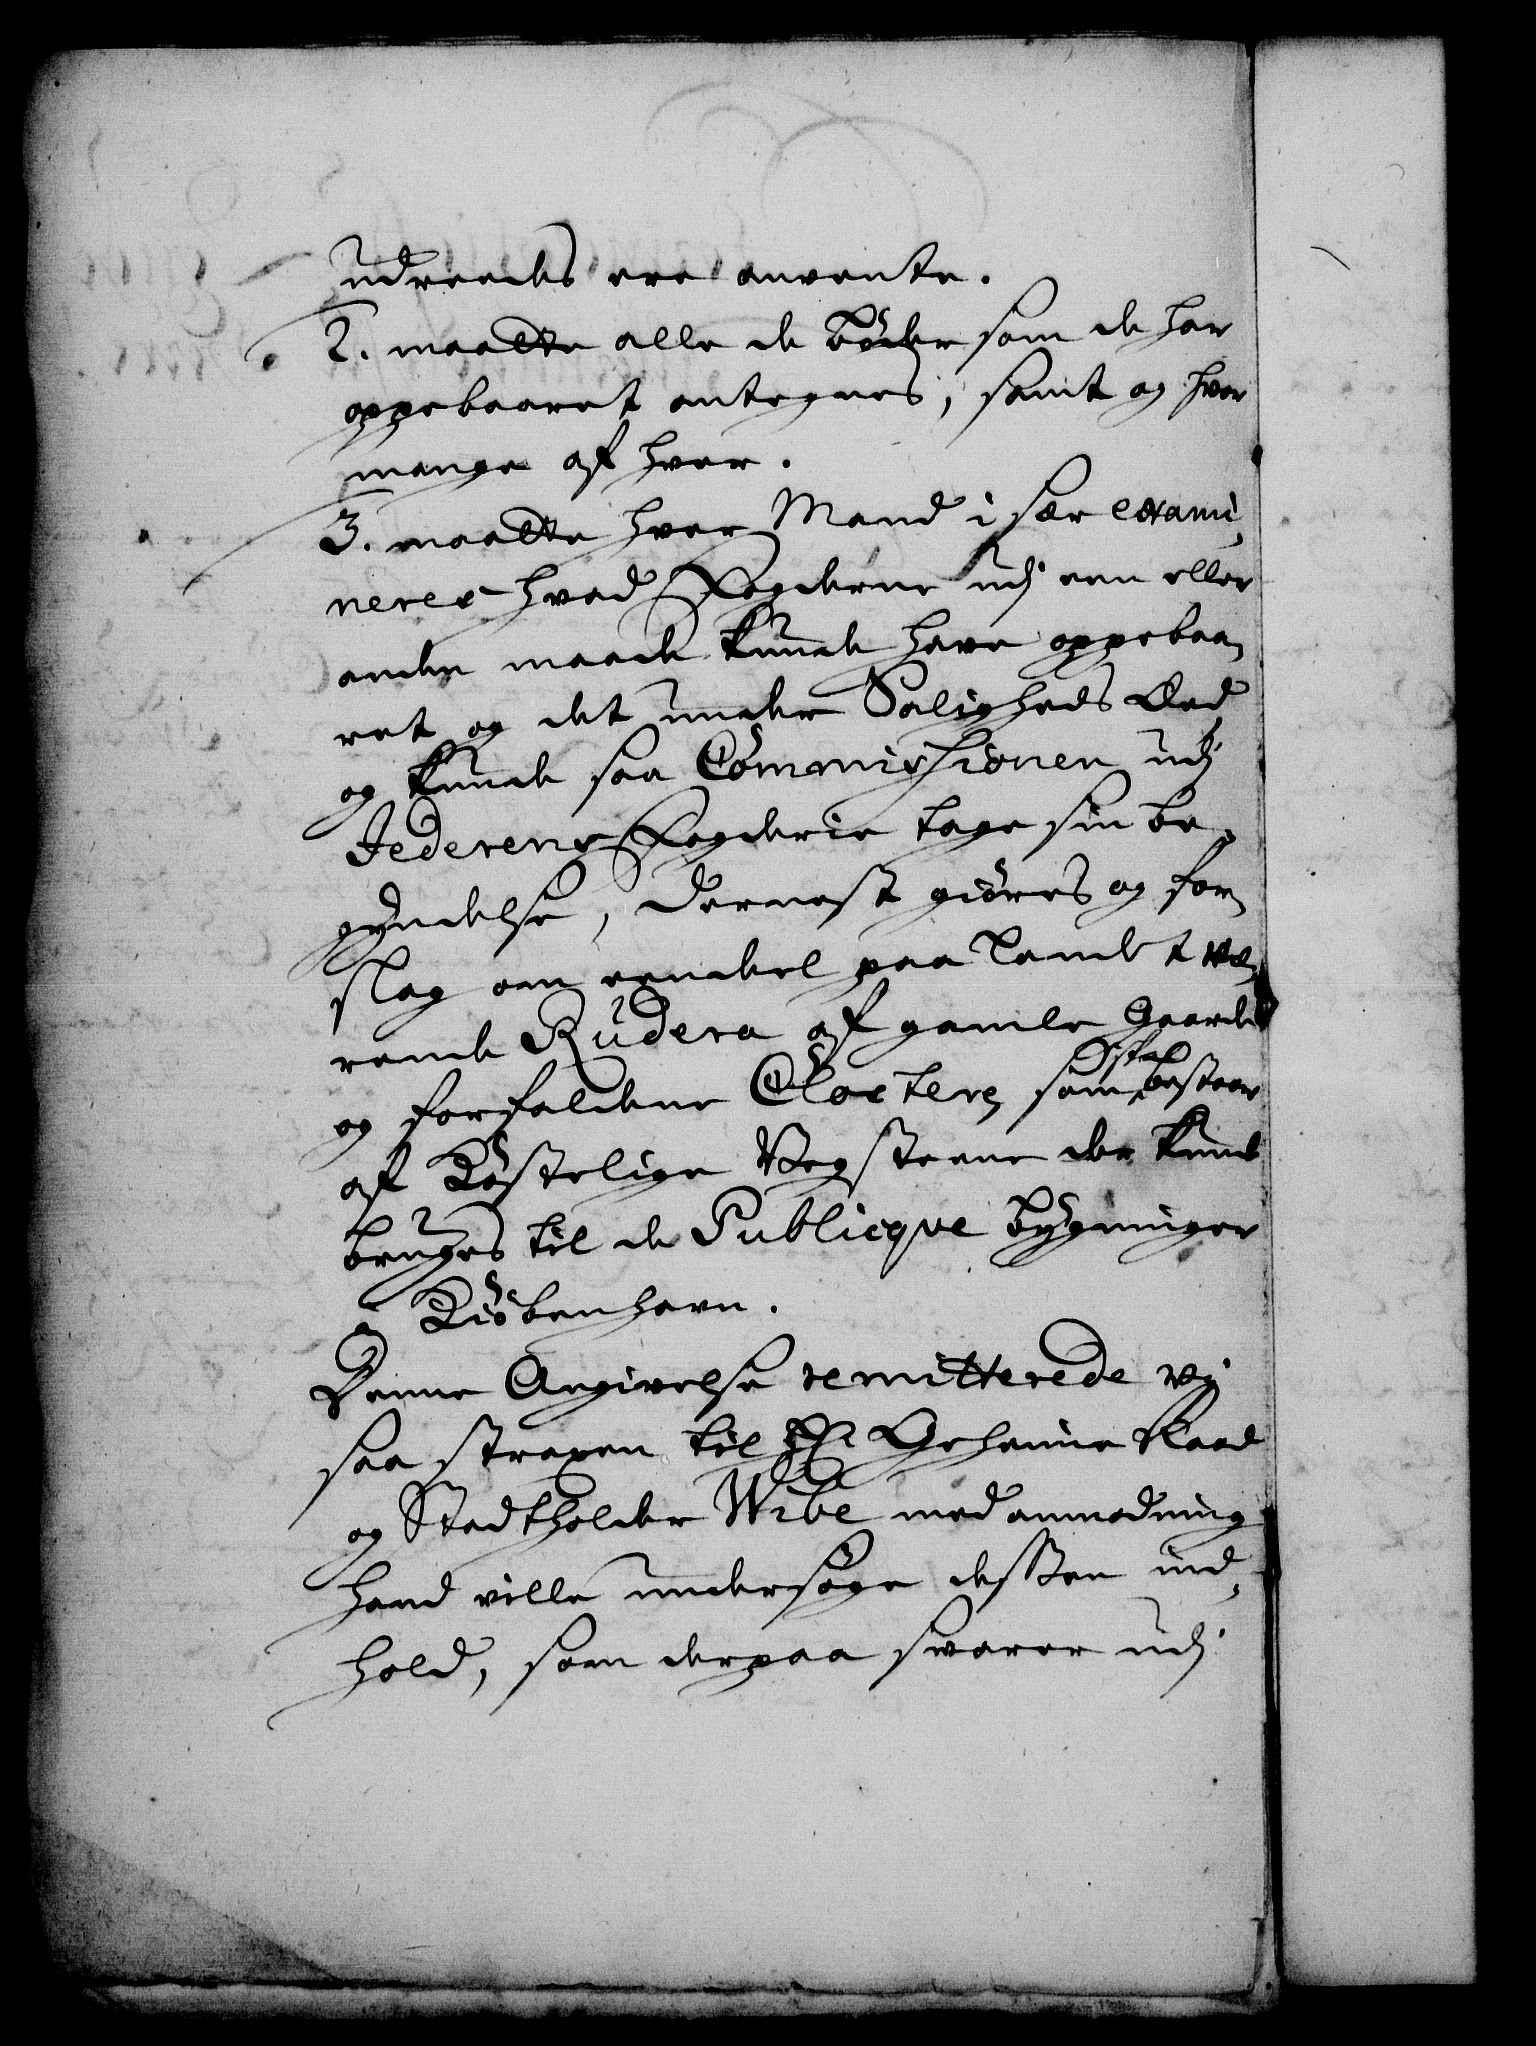 udreedes ere anvente.
2. maatte alle de bøder som de har
oppebaaret antegnes, samt og hvor
mange af hver.
3. maatte hver Mand i sær exami¬
neres hvad Fogderne udj een eller
anden maade kunde have oppebaa¬
ret og det under Saligheds Eed
og kunde saa Commissionen udj
Jederens Fogderie tage sin be¬
gyndelse, dernest giøres og for¬
slag om eendeel paa Landet væ¬
rende Rudera af gamle Gaarde
og forfaldene Closterz som skal bestaar
af Kostelige Vegsteene der kunde
bruges til de Publicqve bygninger
i Kiøbenhavn.
Denne Angivelse remitterede vj
saa straxen til Hr Geheime Raad
og Stadtholder Wibe med anmodning
hand ville undersøge dessen ind¬
hold, som derpaa svarer udj